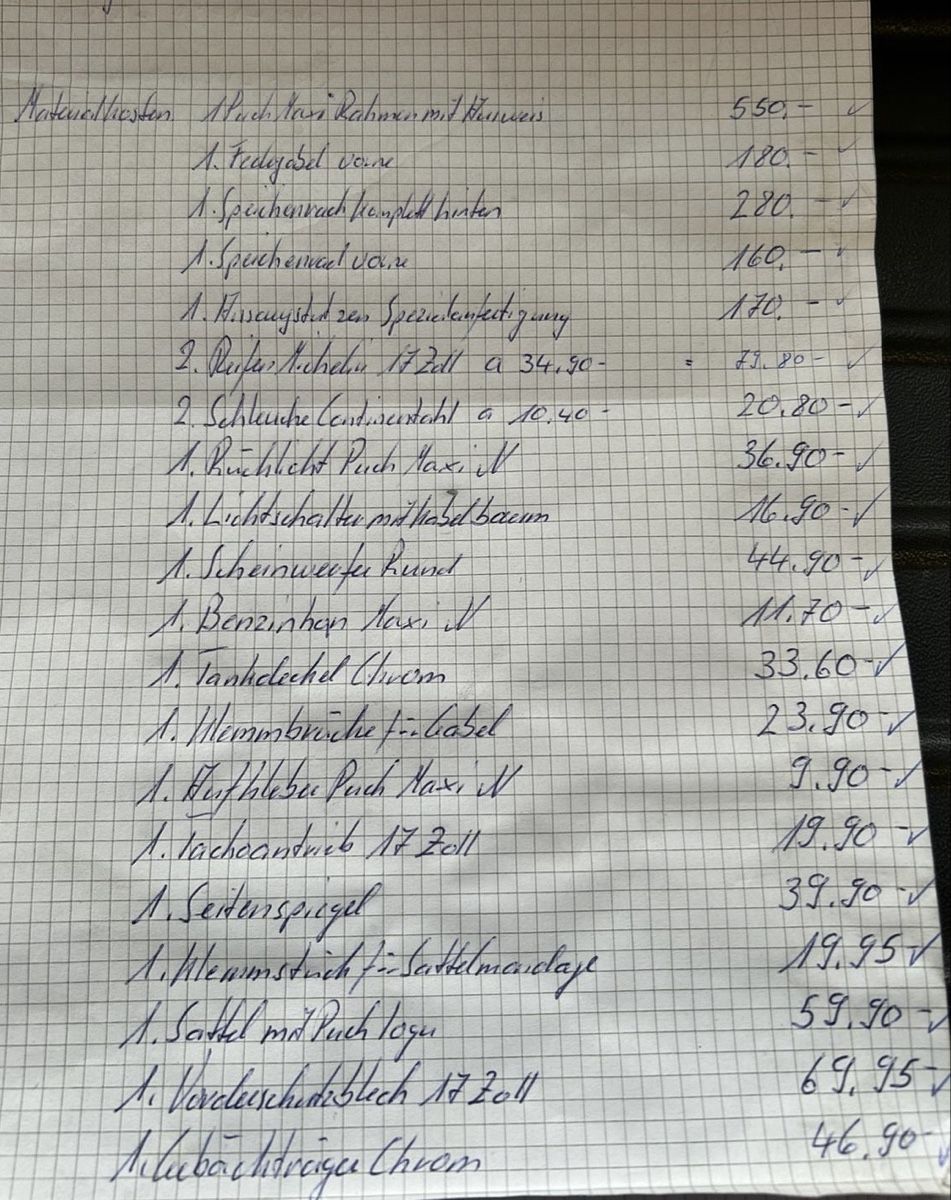 Materialkosten 1 Puch Maxi Rahmen mit Ausweis 550.-
1. Federgabel vorne 180.-
1. Speichenrach komplett hinten 280.-
1. Speichenrad vorne 160.-
1. Ansaugstutzen Spezialanfertigung 170.-
2. Reifen Michelin 17 Zoll a 34.90- = 79.80-
2. Schleuche Continentahl a 10.40- 20.80-
1. Rücklicht Puch Maxi N 36.90-
1. Lichtschalter mit Kabelbaum 16.90-
1. Scheinwerfer Rund 44.90-
1. Benzinhan Maxi N 11.70-
1. Tankdeckel Chrom 33.60-
1. Klemmbrücke für Gabel 23.90-
1. Aufkleber Puch Maxi N 9.90-
1. Tachoantrieb 17 Zoll 19.90-
1. Seitenspiegel 39.90-
1. Klemmstück für Sattelmondage 19.95
1. Sattel mit Puch logu 59.90-
1. Vorderschutzblech 17 Zoll 69.95-
1. Gebächträger Chrom 46.90-